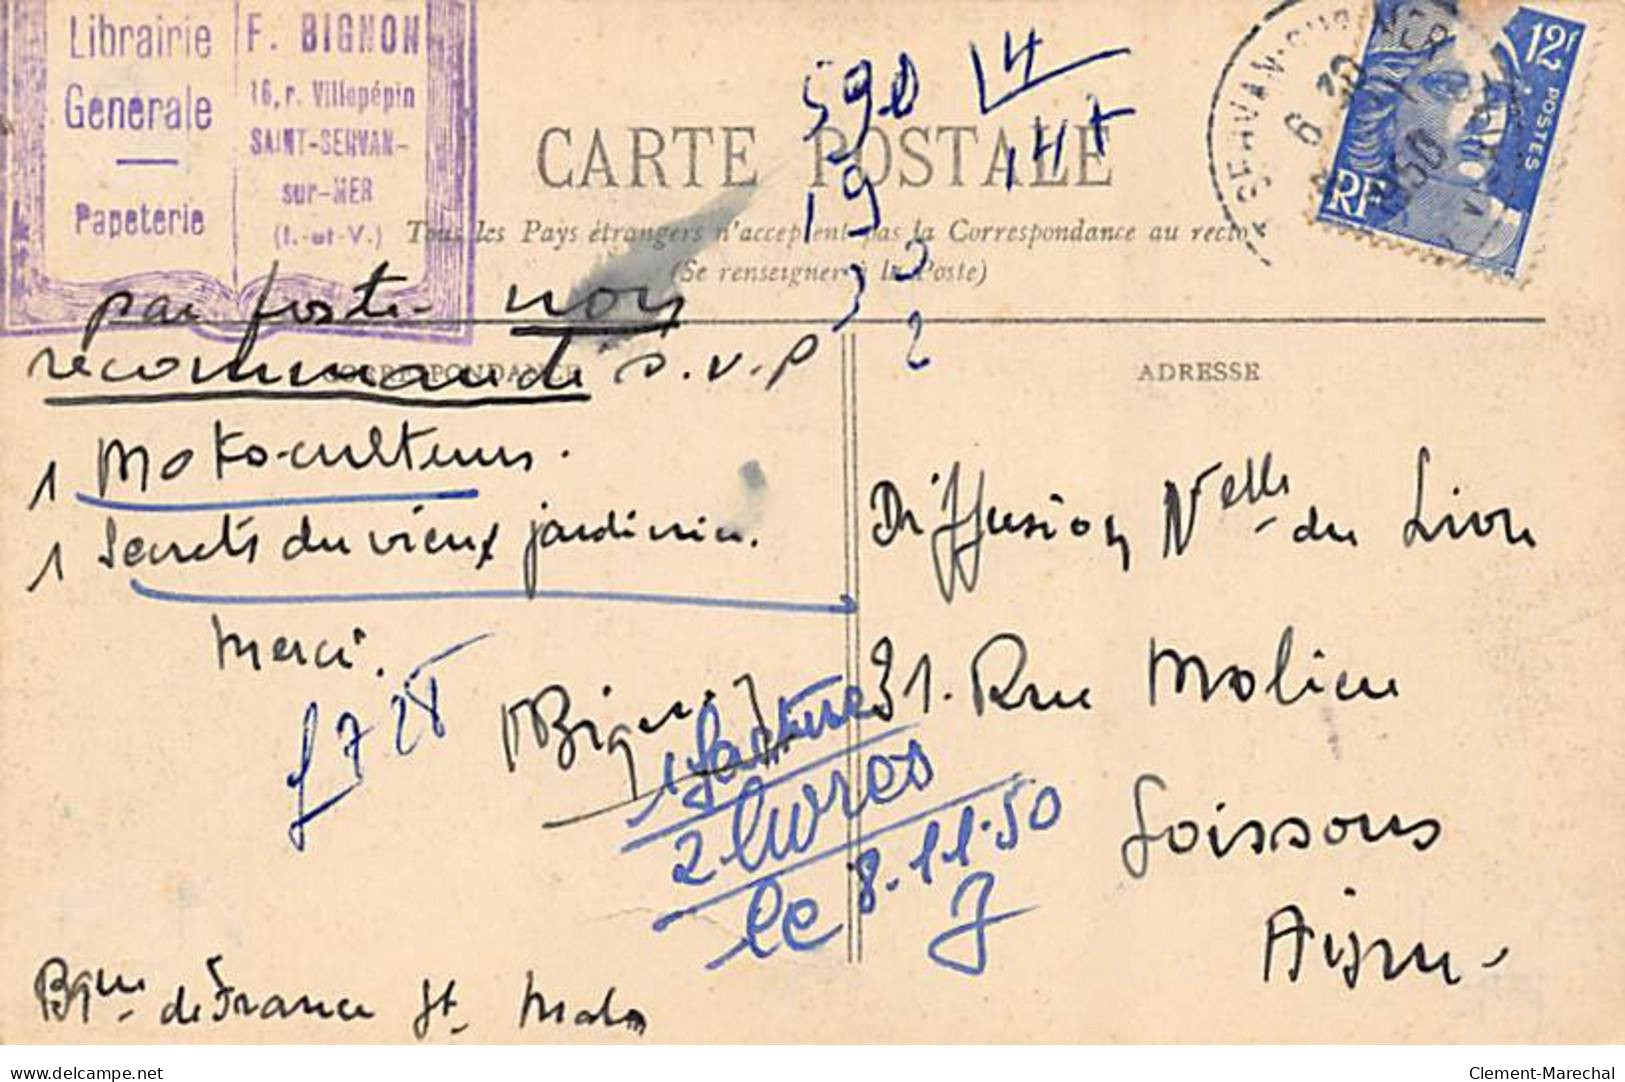 Librairie
Générale
Papeterie
F. BIGNON
16, r. Villepépin
SAINT-SERVAN-
sur-MER
(I.-et-V.)
590 14
19 147
33
2
12F
POSTES
RF
6 30
1950
CARTE POSTALE
Tous les Pays étrangers n'acceptent pas la Correspondance au recto
(Se renseigner à la Poste)
CORRESPONDANCE
ADRESSE
par poste non
recommandé S.V.P
1 Moto-culteurs.
1 Secrets du vieux jardinier.
Merci.
F Bignon
£ 728
1 facture
2 livres
le 8.11.50
J
Bque de France St Malo
Diffusion Nelle du Livre
31. Rue Molière
Soissons
Aisne
delcampe.net
Clement-Marechal